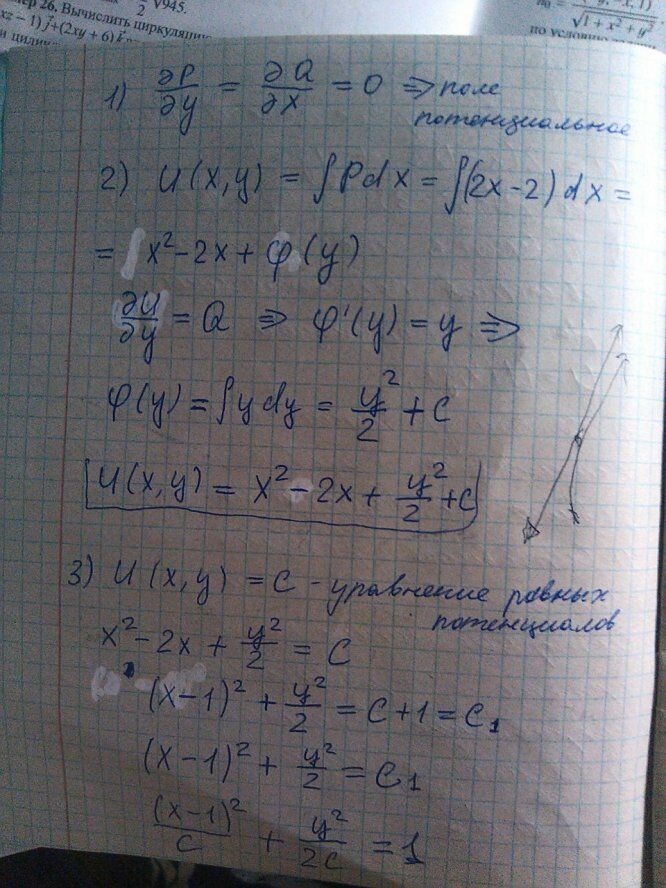 26. Вычислить циркуляцию
xz − 1) j + (2xy + 6) k
√945.
√(1 + x² + y²)
по условию
1) ∂P/∂y = ∂Q/∂x = 0 ⇒ поле
потенциальное
2) U(x,y) = ∫Pdx = ∫(2x-2)dx =
= x² - 2x + φ(y)
∂U/∂y = Q ⇒ φ'(y) = y ⇒
φ(y) = ∫ydy = y²/2 + C
U(x,y) = x² - 2x + y²/2 + C
3) U(x,y) = C - уравнение равных
потенциалов
x² - 2x + y²/2 = C
(x-1)² + y²/2 = C+1 = C₁
(x-1)² + y²/2 = C₁
(x-1)²/C + y²/2C = 1